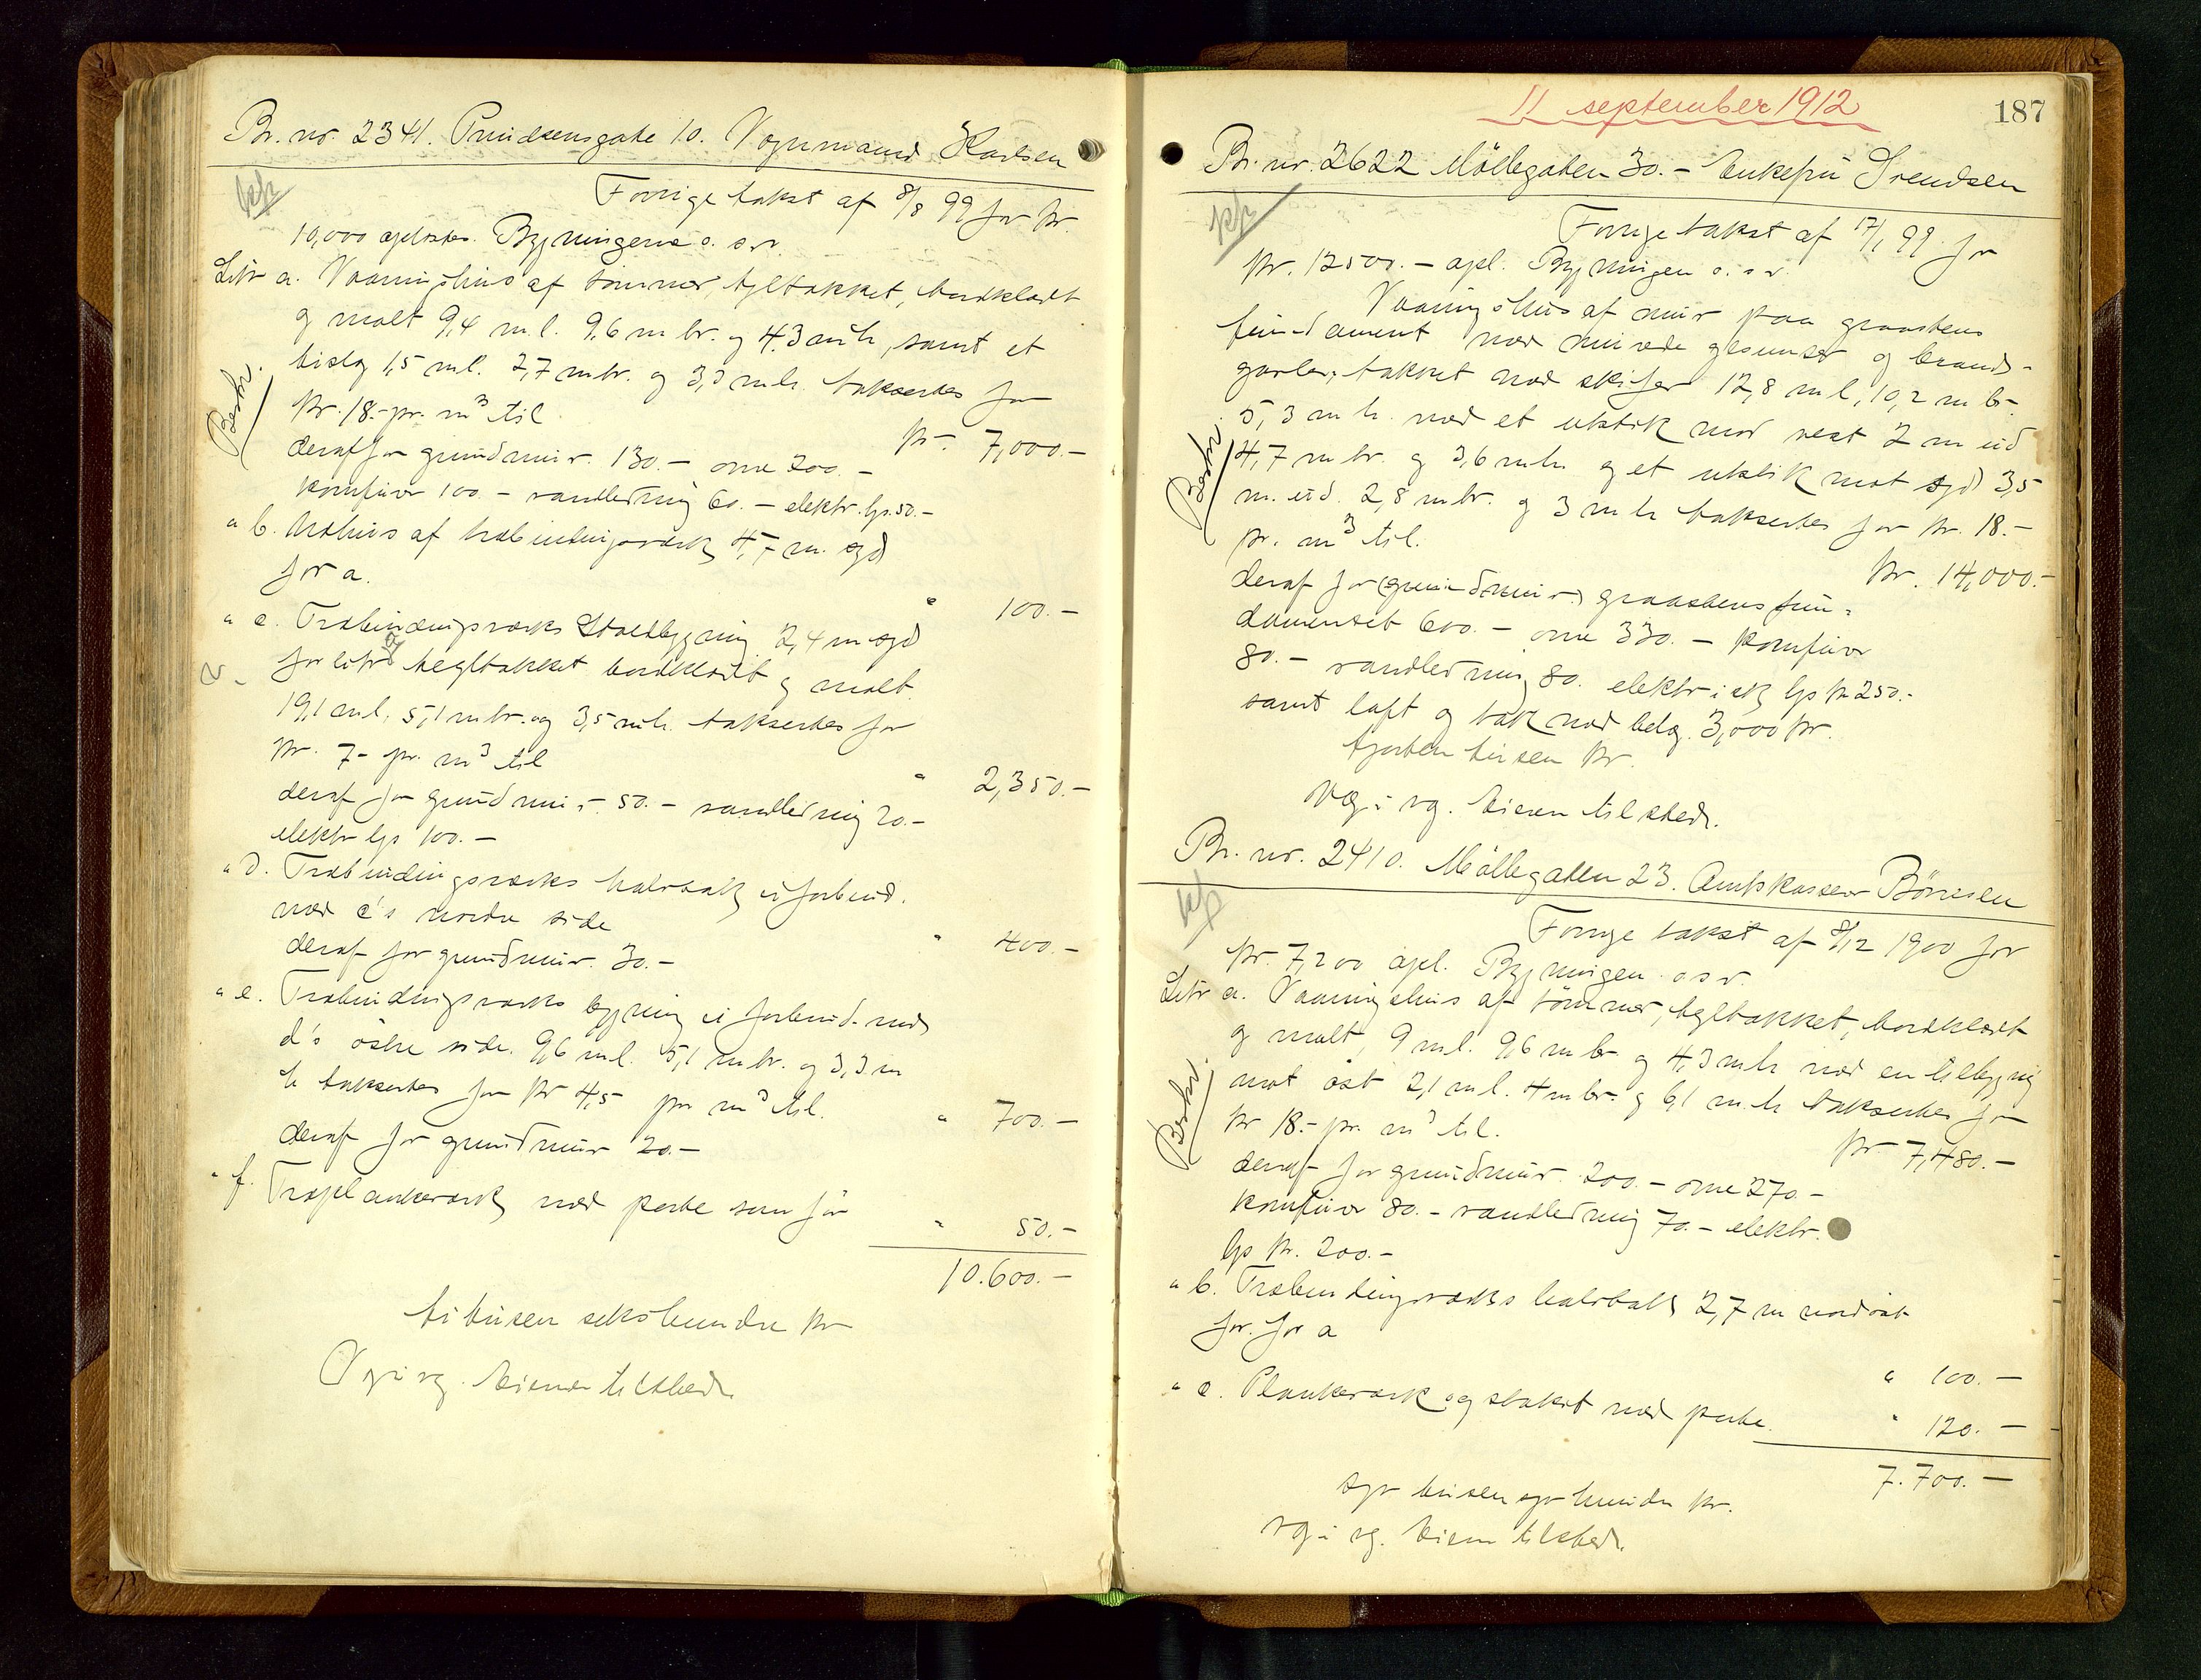 Br. nr. 2341. Prindsensgate 10. Vognmand Karlsen
Forrige takst af 8/8 99 for kr.
10,000 oplæstes. Bygningerne o. s. v.
Litr a. Vaaningshus af tømmer, tegltækket, bordklædt
og malt 9,4 m l. 9,6 m br. og 4,3 m h, samt et
bislag 1,5 m l. 2,7 m br. og 3,3 m h. takseres for
Beskr.
kr. 18.- pr. m³ til kr 7,000.-
deraf for grundmur 130.- ovne 200.-
komfyrer 100.- vandledning 60.- elektr. lys 50.-
" b. Udhus af træbindingsværk 4,7 m. syd
for a. " 100.-
" c. Træbindingsværks staldbygning 2,4 m syd
for litr a tegltækket bordklædt og malt
19,1 m l. 5,1 m br. og 3,5 m h. takseres for
kr. 7- pr. m³ til " 2,350.-
deraf for grundmur 50.- vandledning 20.-
elektr lys 100.-
" d. Træbindingsværks halvtak i forbind.
med c's nordre side " 400.-
deraf for grundmur 30.-
" e. Træbindingsværks bygning i forbind. med
d's østre side. 9,6 m l. 5,1 m br. og 3,3 m
h takseres for kr 4,5 pr m³ til. " 700.-
deraf for grundmur 20.-
" f. Træplankeværk med porte som før " 50.-
10.600.-
ti tusen sekshundre kr
V g i vg. Eieren tilstede.
11 september 1912
187
Br. nr. 2622 Møllegaten 30. - Enkefru Svendsen
Forrige takst af 17/1 99 for
kr. 12500.- opl. Bygningen o. s. v.
Vaaningshus af mur paa graastens
fundament med murede gesimser og brand-
gavler, tækket med skifer 12,8 m l, 10,2 m br.
5,3 m h. med et utstik mod vest 2 m ud
Beskr.
4,7 m br. og 3,6 m h og et utstik mot syd 3,5
m. ud. 2,8 m br. og 3 m h takseres for kr. 18.-
pr. m³ til. kr. 14,000.-
deraf for (grundmur) graastensfun-
damentet 600.- ovne 330.- komfyrer
80.- vandledning 80. elektrisk lys kr 250.-
samt loft og tak med belæg. 3,000 kr.
fjorten tusen kr.
V g i vg. Eieren tilstede.
Br. nr. 2410. Møllegaten 23. Amtskasserer Børresen
Forrige takst af 8/12 1900 for
kr. 7,200 opl. Bygningen o s v.
Litr a. Vaaningshus af tømmer, tegltækket, bordklædt
og malt, 9 m l. 9,6 m br og 4,3 m h med en tilbygning
mot øst 2,1 m l. 4 m br. og 6,1 m. h takseres for
Beskr.
kr 18.- pr. m³ til. kr 7,480.-
deraf for grundmur 200.- ovne 270.-
komfyrer 80.- vandledning 70.- elektr.
lys kr. 200.-
" b. Træbindingsværks halvtak 2,7 m nordøst
for. for a " 100.-
" c. Plankeværk og stakit med porte. " 120.-
7.700.-
syv tusen syv hundre kr.
V g i vg. Eieren tilstede.